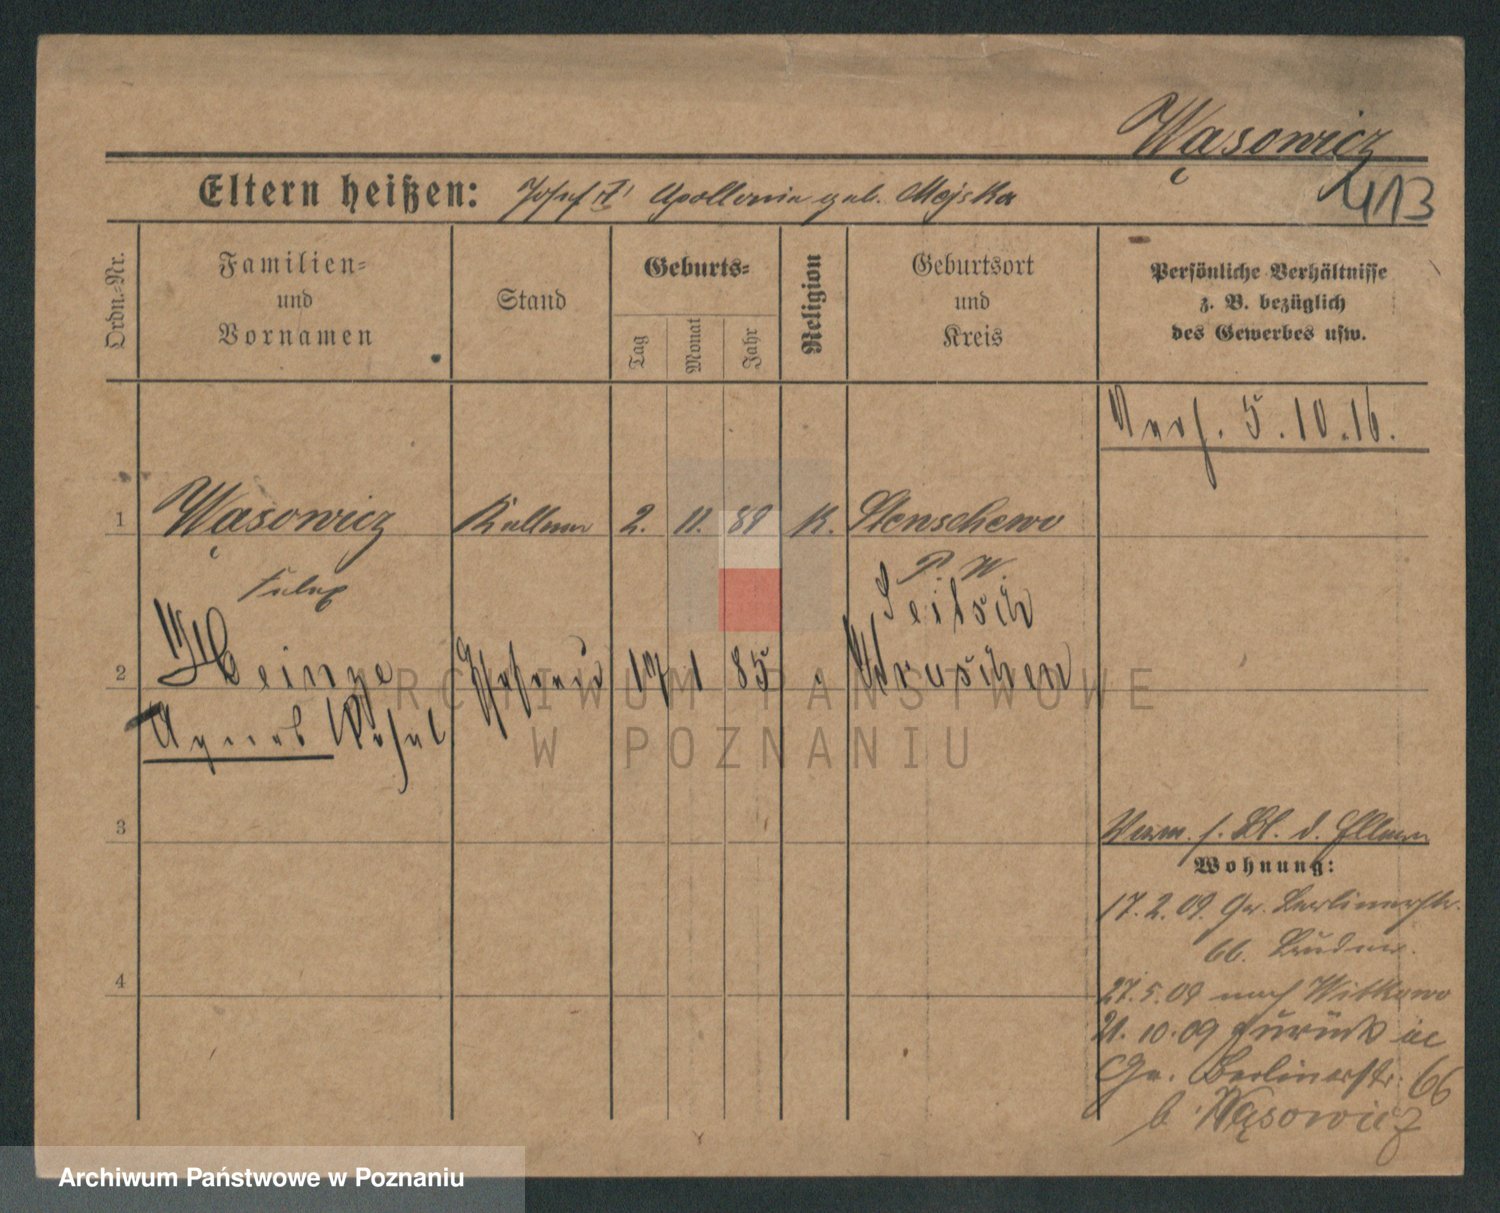 Wąsowicz
413
Eltern heißen: Josef u Apollonia geb. Mejska
Ordn.=Nr.
Familien=
und
Vornamen
Stand
Geburts=
Tag
Monat
Jahr
Religion
Geburtsort
und
Kreis
Persönliche Verhältnisse
z. B. bezüglich
des Gewerbes usw.
5.10.16.
1 Wąsowicz Kellner 2. 11. 89 K. Stenschewo
P. W.
2 Heinze Ehefrau 17 1 85 Kruschen
Agnes
3
4
Wohnung:
17.2.09. Gr. Berlinerstr.
66. Bruder.
27.5.09 nach Witkowo
21.10.09 zurück in
Gr. Berlinerstr. 66
b. Wąsowicz
ARCHIWUM PAŃSTWOWE
W POZNANIU
Archiwum Państwowe w Poznaniu